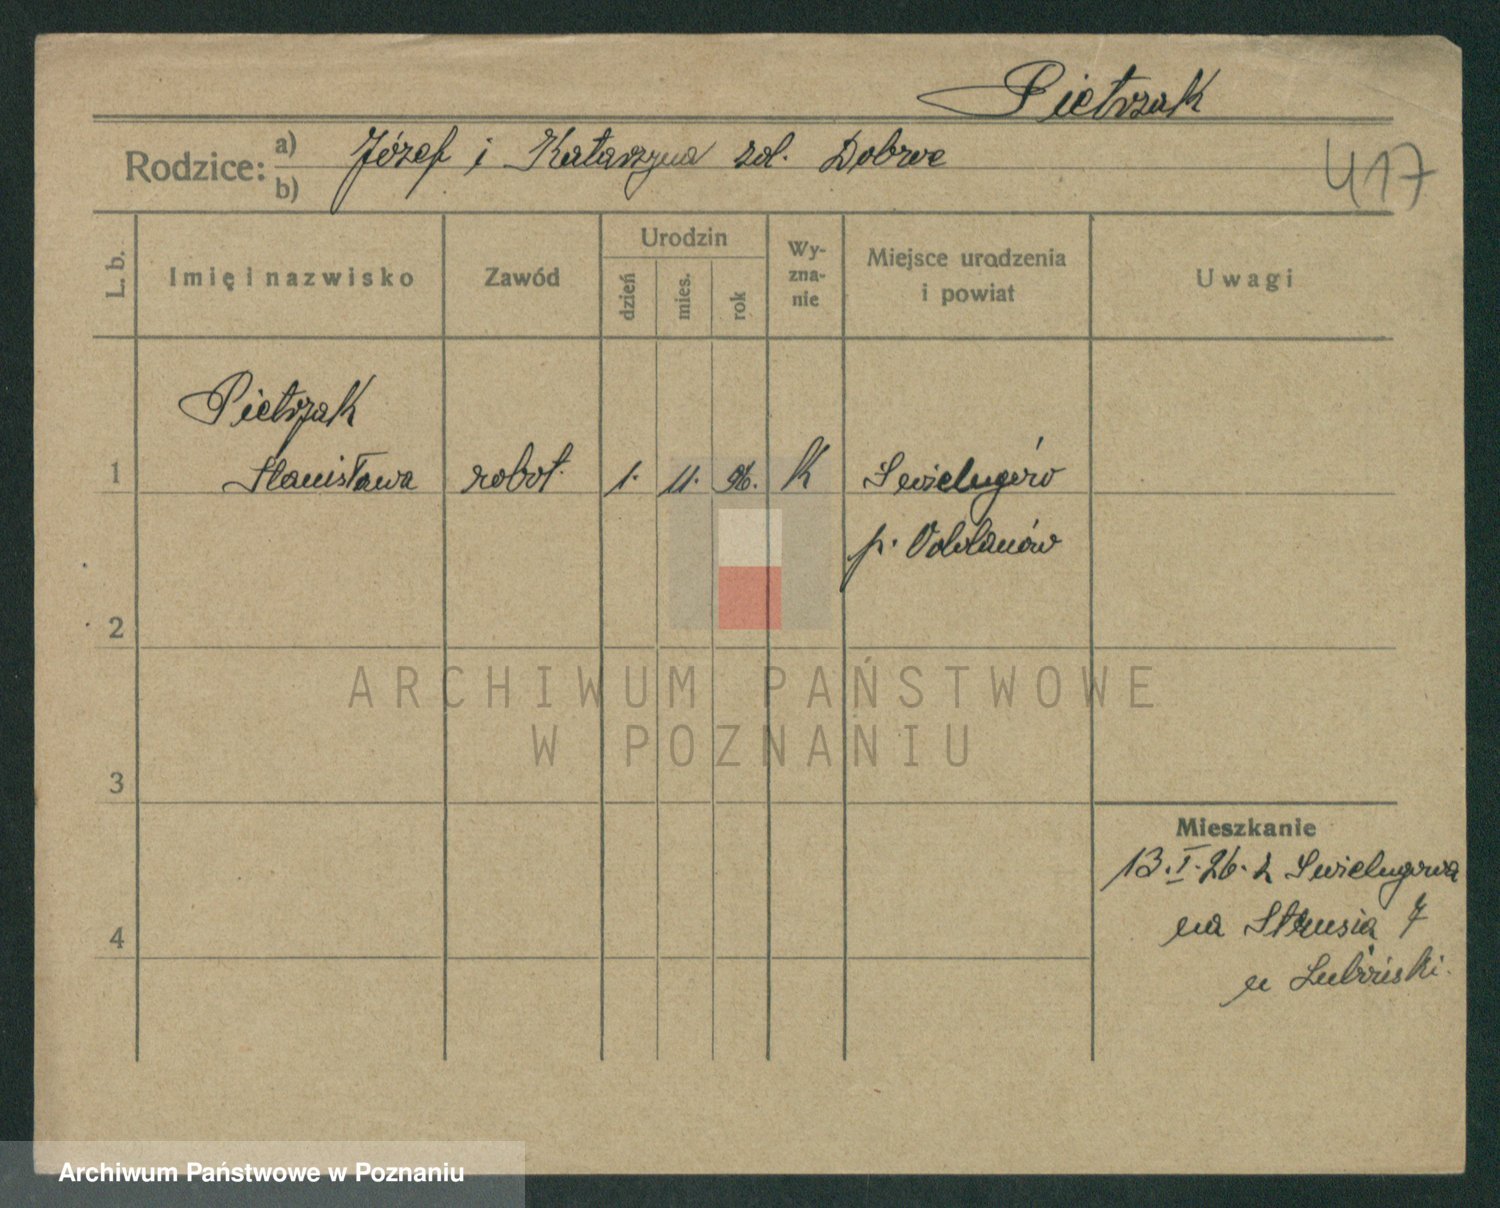 Pietrzak
Rodzice: a) Józef i Katarzyna zd. Dobroć
b)
417
L. b. Imię i nazwisko Zawód Urodzin dzień mies. rok Wyznanie Miejsce urodzenia i powiat Uwagi
Pietrzak
1 Stanisława robot. 1. 11. 96. K Świeligów
p. Odolanów
2
3
4
Mieszkanie
13.I.26. z Świeligowa
na 7
u
ARCHIWUM PAŃSTWOWE
W POZNANIU
Archiwum Państwowe w Poznaniu